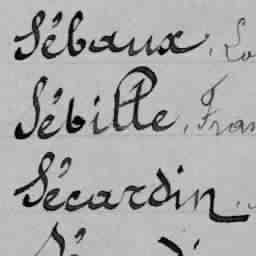 Sébaux, Lo
Sébille, Fran
Sécardin,